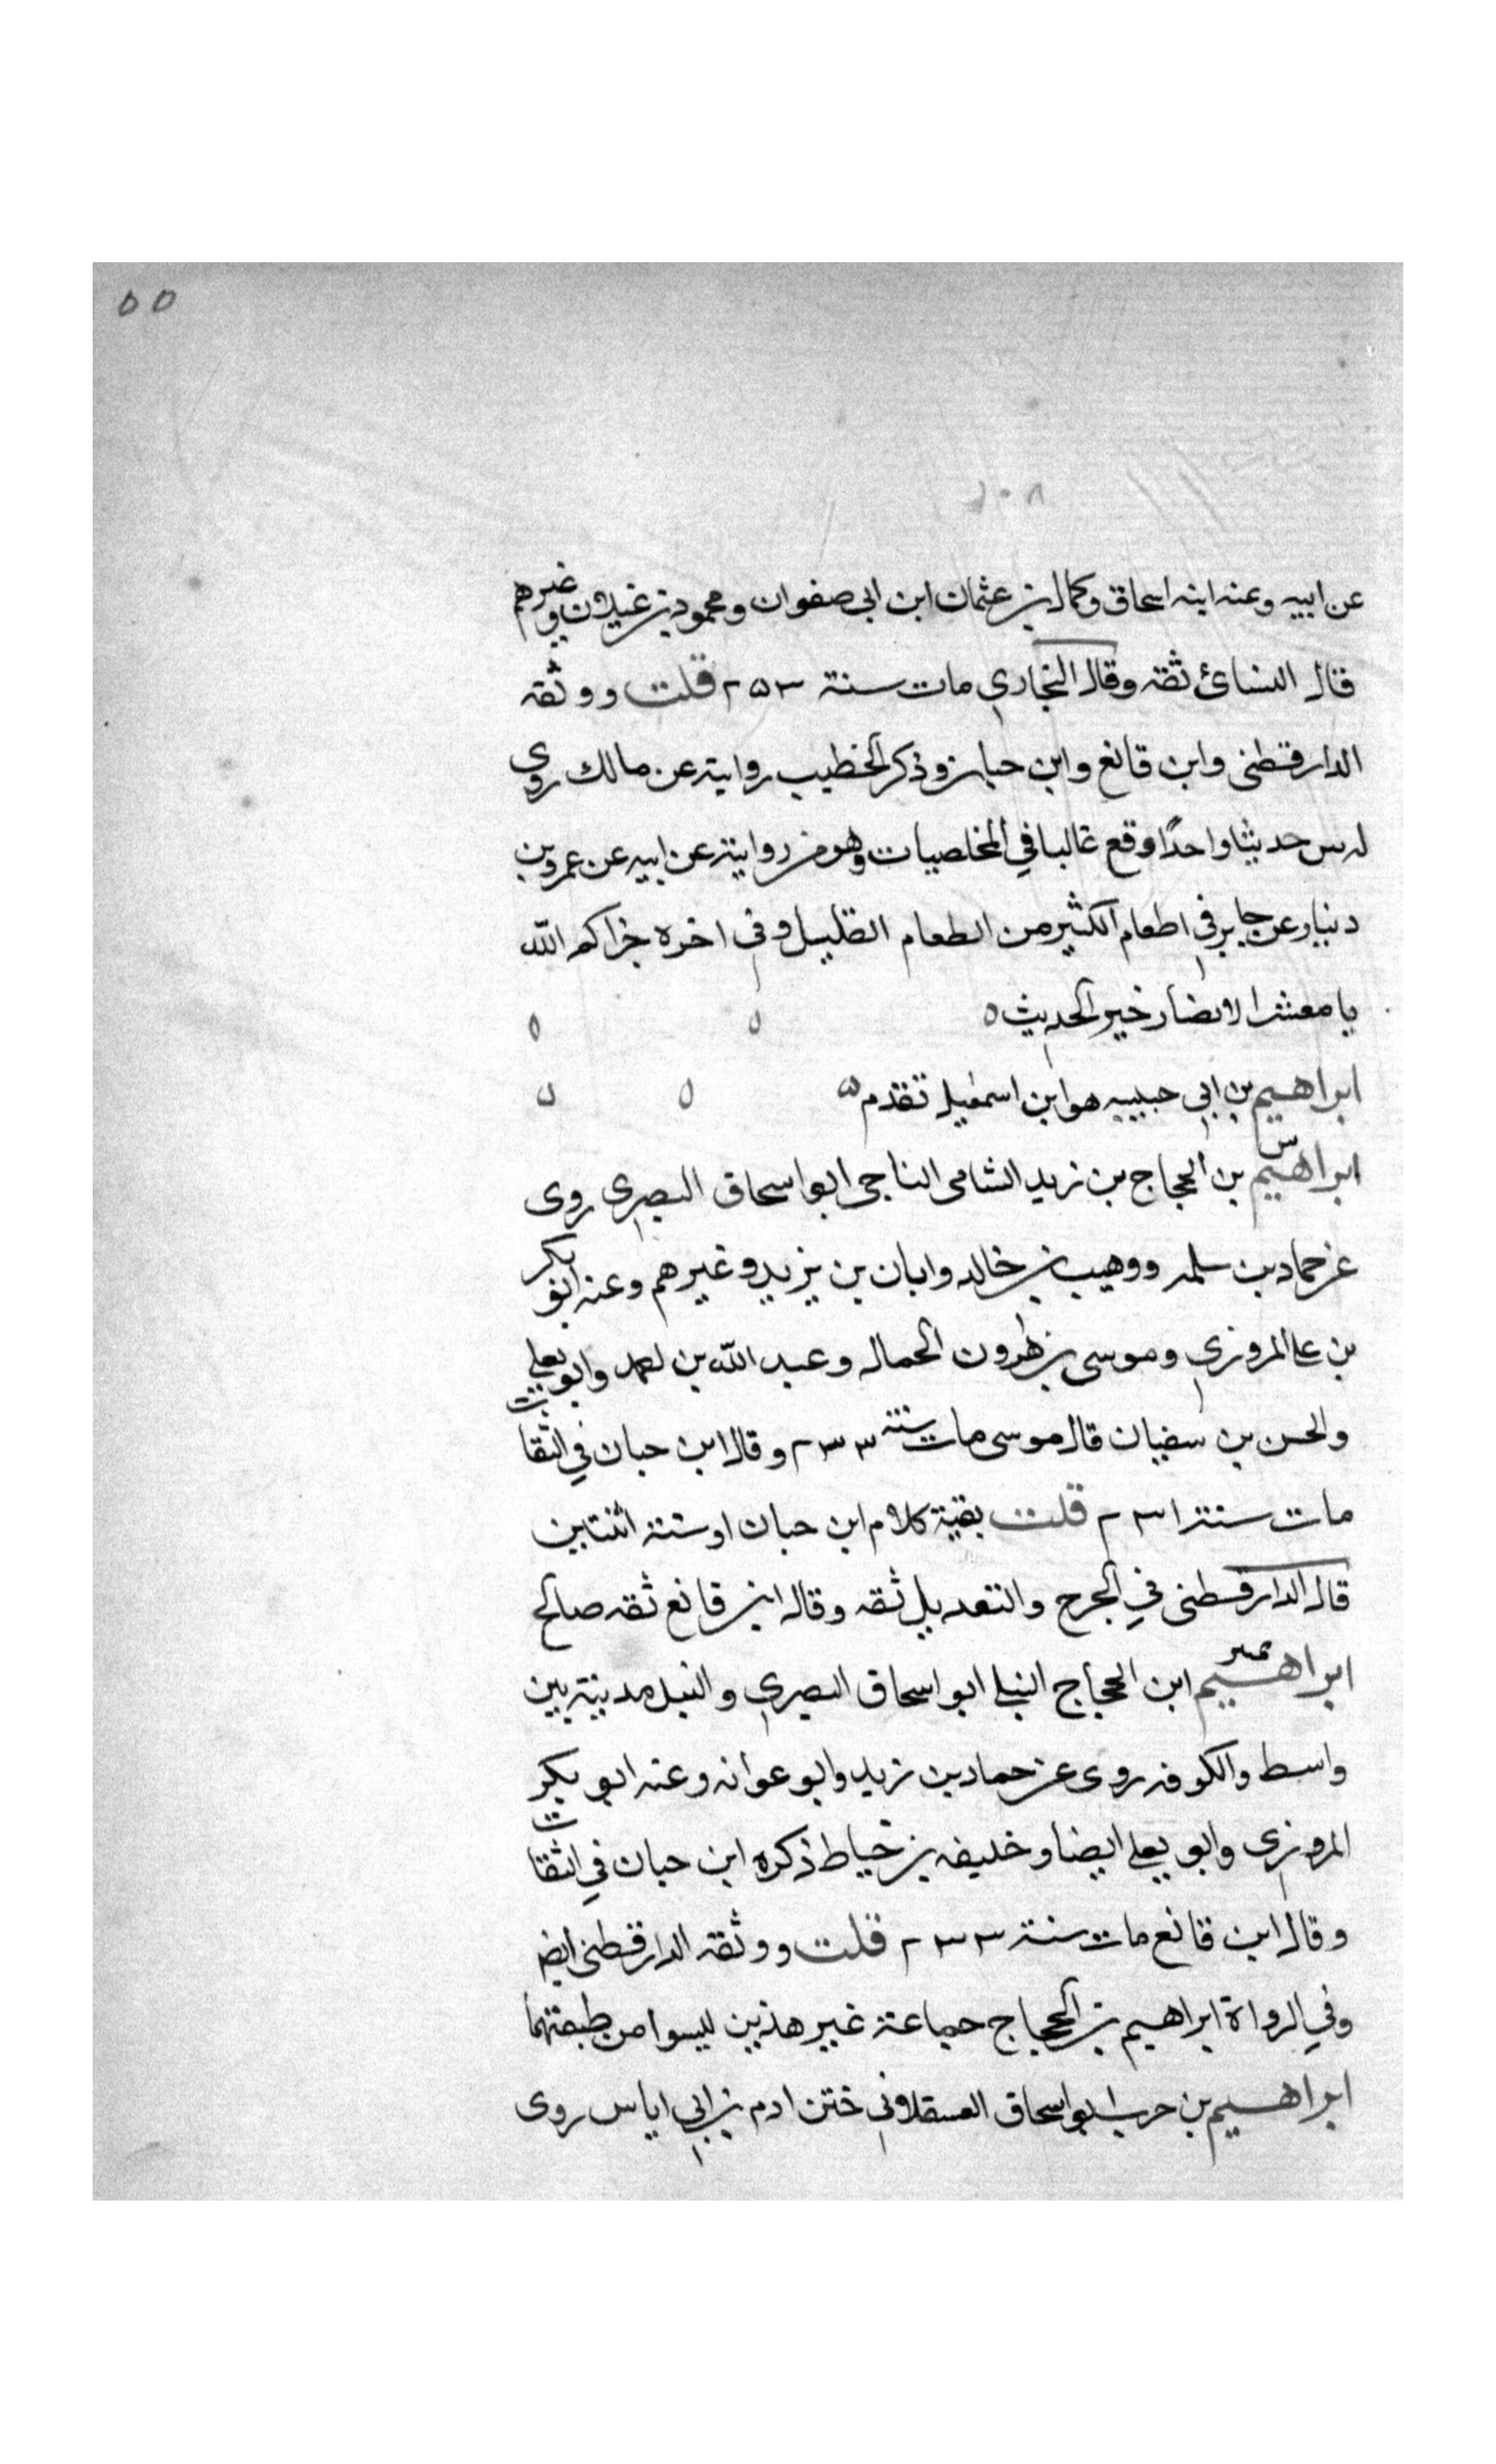 ٥٥
٢٠٨
عن ابيه وعنه ابنه اسحاق وكمال بن عثمان ابن ابي صفوان ومحمود بن غيلان وغيرهم
قال النسائ ثقه وقال البخاري مات سنة ٢٥٣ قلت ووثقه
الدارقطنى وابن قانع وابن حبان وذكر الخطيب روايته عن مالك روى
له س حديثا واحدًا وقع غالبا في المخلصيات وهو من روايته عن ابيه عن عمرو بن
دينار عن جابر في اطعام الكثير من الطعام القليل وفي اخره جزاكم الله
يا معشر الانصار خير الحديث ه
ابراهيم بن ابي حبيبه هو ابن اسمعيل تقدم ه
ابراهيم س بن الحجاج بن زيد الشامى الناجى ابو اسحاق البصرى روى
عن حماد بن سلمه ووهيب بن خالد وابان بن يزيد وغيرهم وعنه ابو بكر
بن على المروزي وموسى بن هرون الحمال وعبد الله بن احمد وابو يعلى
والحسن بن سفيان قال موسى مات سنة ٢٣٣ وقال ابن حبان في الثقات
مات سنة ٢٣١ قلت بقية كلام ابن حبان او سنة اثنتاين
قال الدارقطنى في الجرح والتعديل ثقه وقال ابن قانع ثقه صالح
ابراهيم ابن الحجاج النيلى ابو اسحاق البصري والنيل مدينة بين
واسط والكوفه روى عن حماد بن زيد وابو عوانه وعنه ابو بكر
المروزى وابو يعلى ايضا وخليفه بن خياط ذكره ابن حبان في الثقات
وقال ابن قانع مات سنة ٢٣٣ قلت ووثقه الدارقطنى ايض
وفي الرواة ابراهيم بن الحجاج جماعة غير هذين ليسوا من طبقتهما
ابراهيم بن حرب ابو اسحاق العسقلاني ختن ادم بن ابي اياس روى